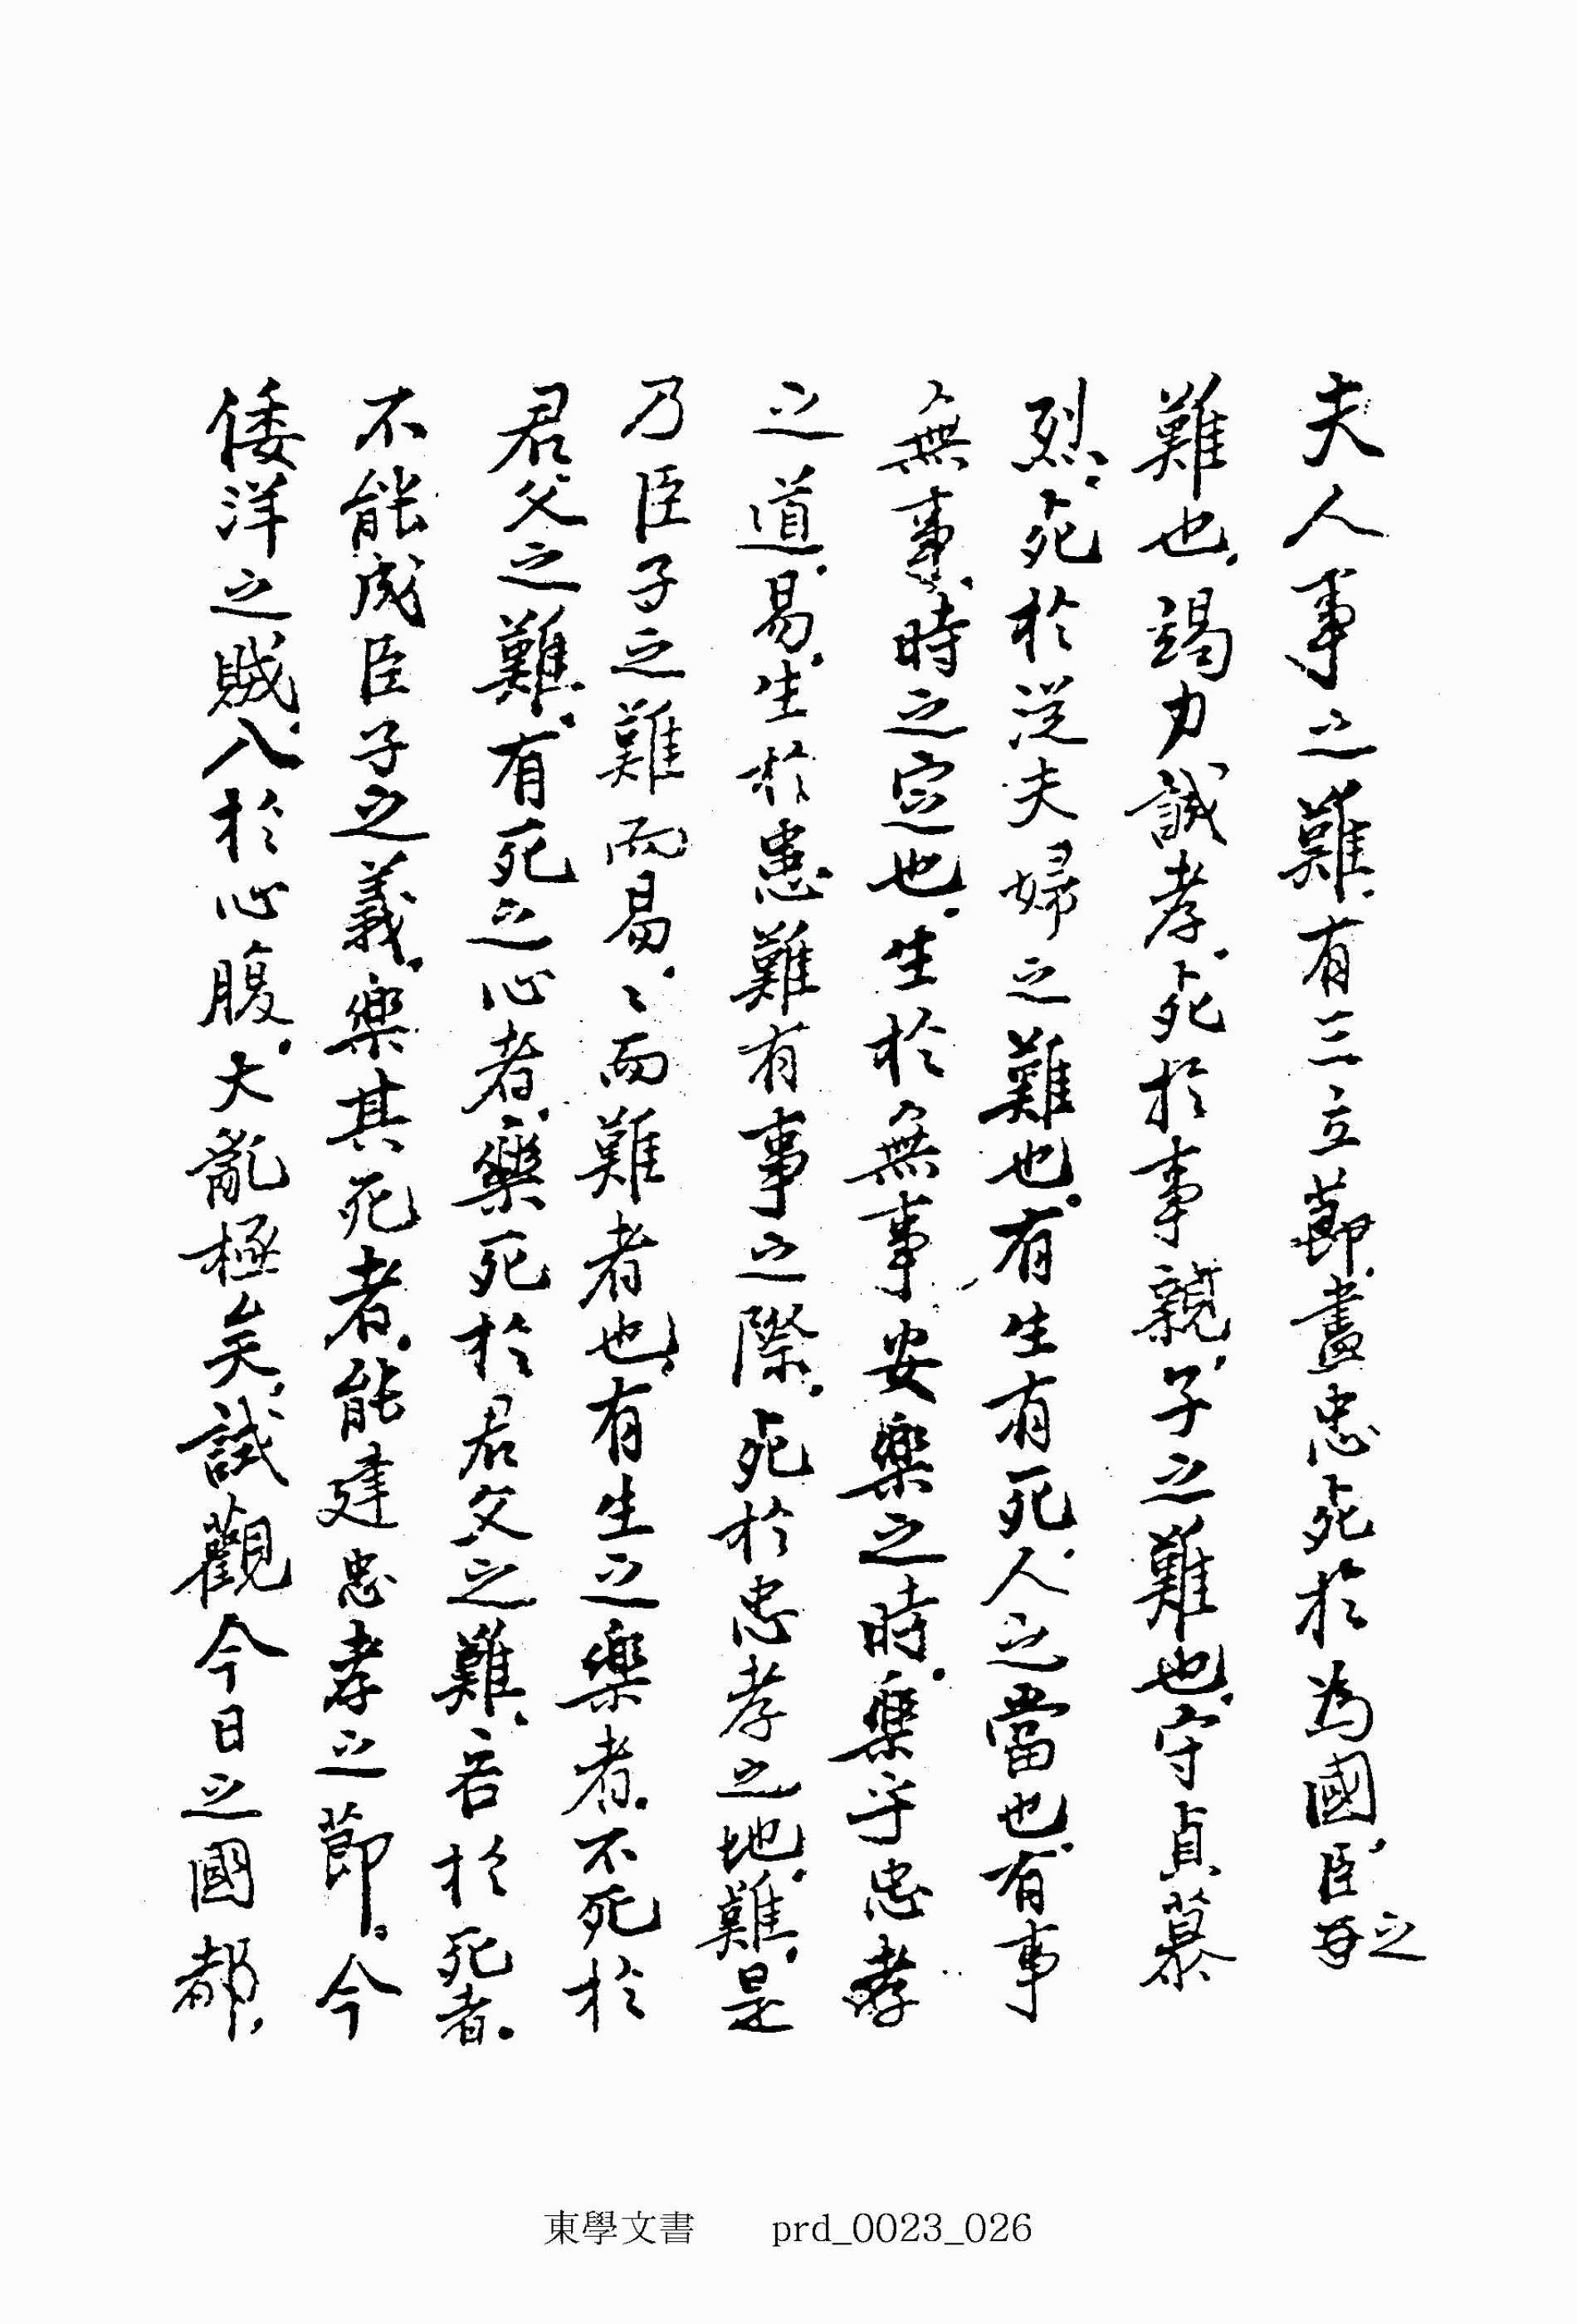 夫人事之難.有三立節.盡忠死於為國.臣之
難也.竭力誠孝.死於事親.子之難也.守貞慕
烈.死於從夫婦之難也.有生有死.人之當也.有事
無事.時之定也.生於無事安樂之時.樂乎忠孝
之道.易.生於患難有事之際.死於忠孝之地.難.是
乃臣子之難而易.〻而難者也.有生之樂者.不死於
君父之難.有死之心者.樂死於君父之難.吝於死者.
不能成臣子之義.樂其死者.能建忠孝之節.今
倭洋之賊.入於心腹.大亂極矣.試觀今日之國都.
東學文書 prd_0023_026